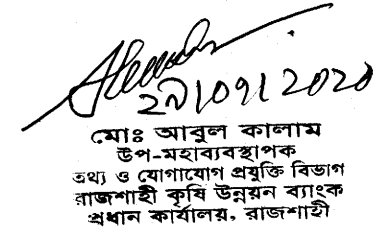 ২৯/০৭/২০২০
মোঃ আবুল কালাম
উপ-মহাব্যবস্থাপক
তথ্য ও যোগাযোগ প্রযুক্তি বিভাগ
রাজশাহী কৃষি উন্নয়ন ব্যাংক
প্রধান কার্যালয়, রাজশাহী